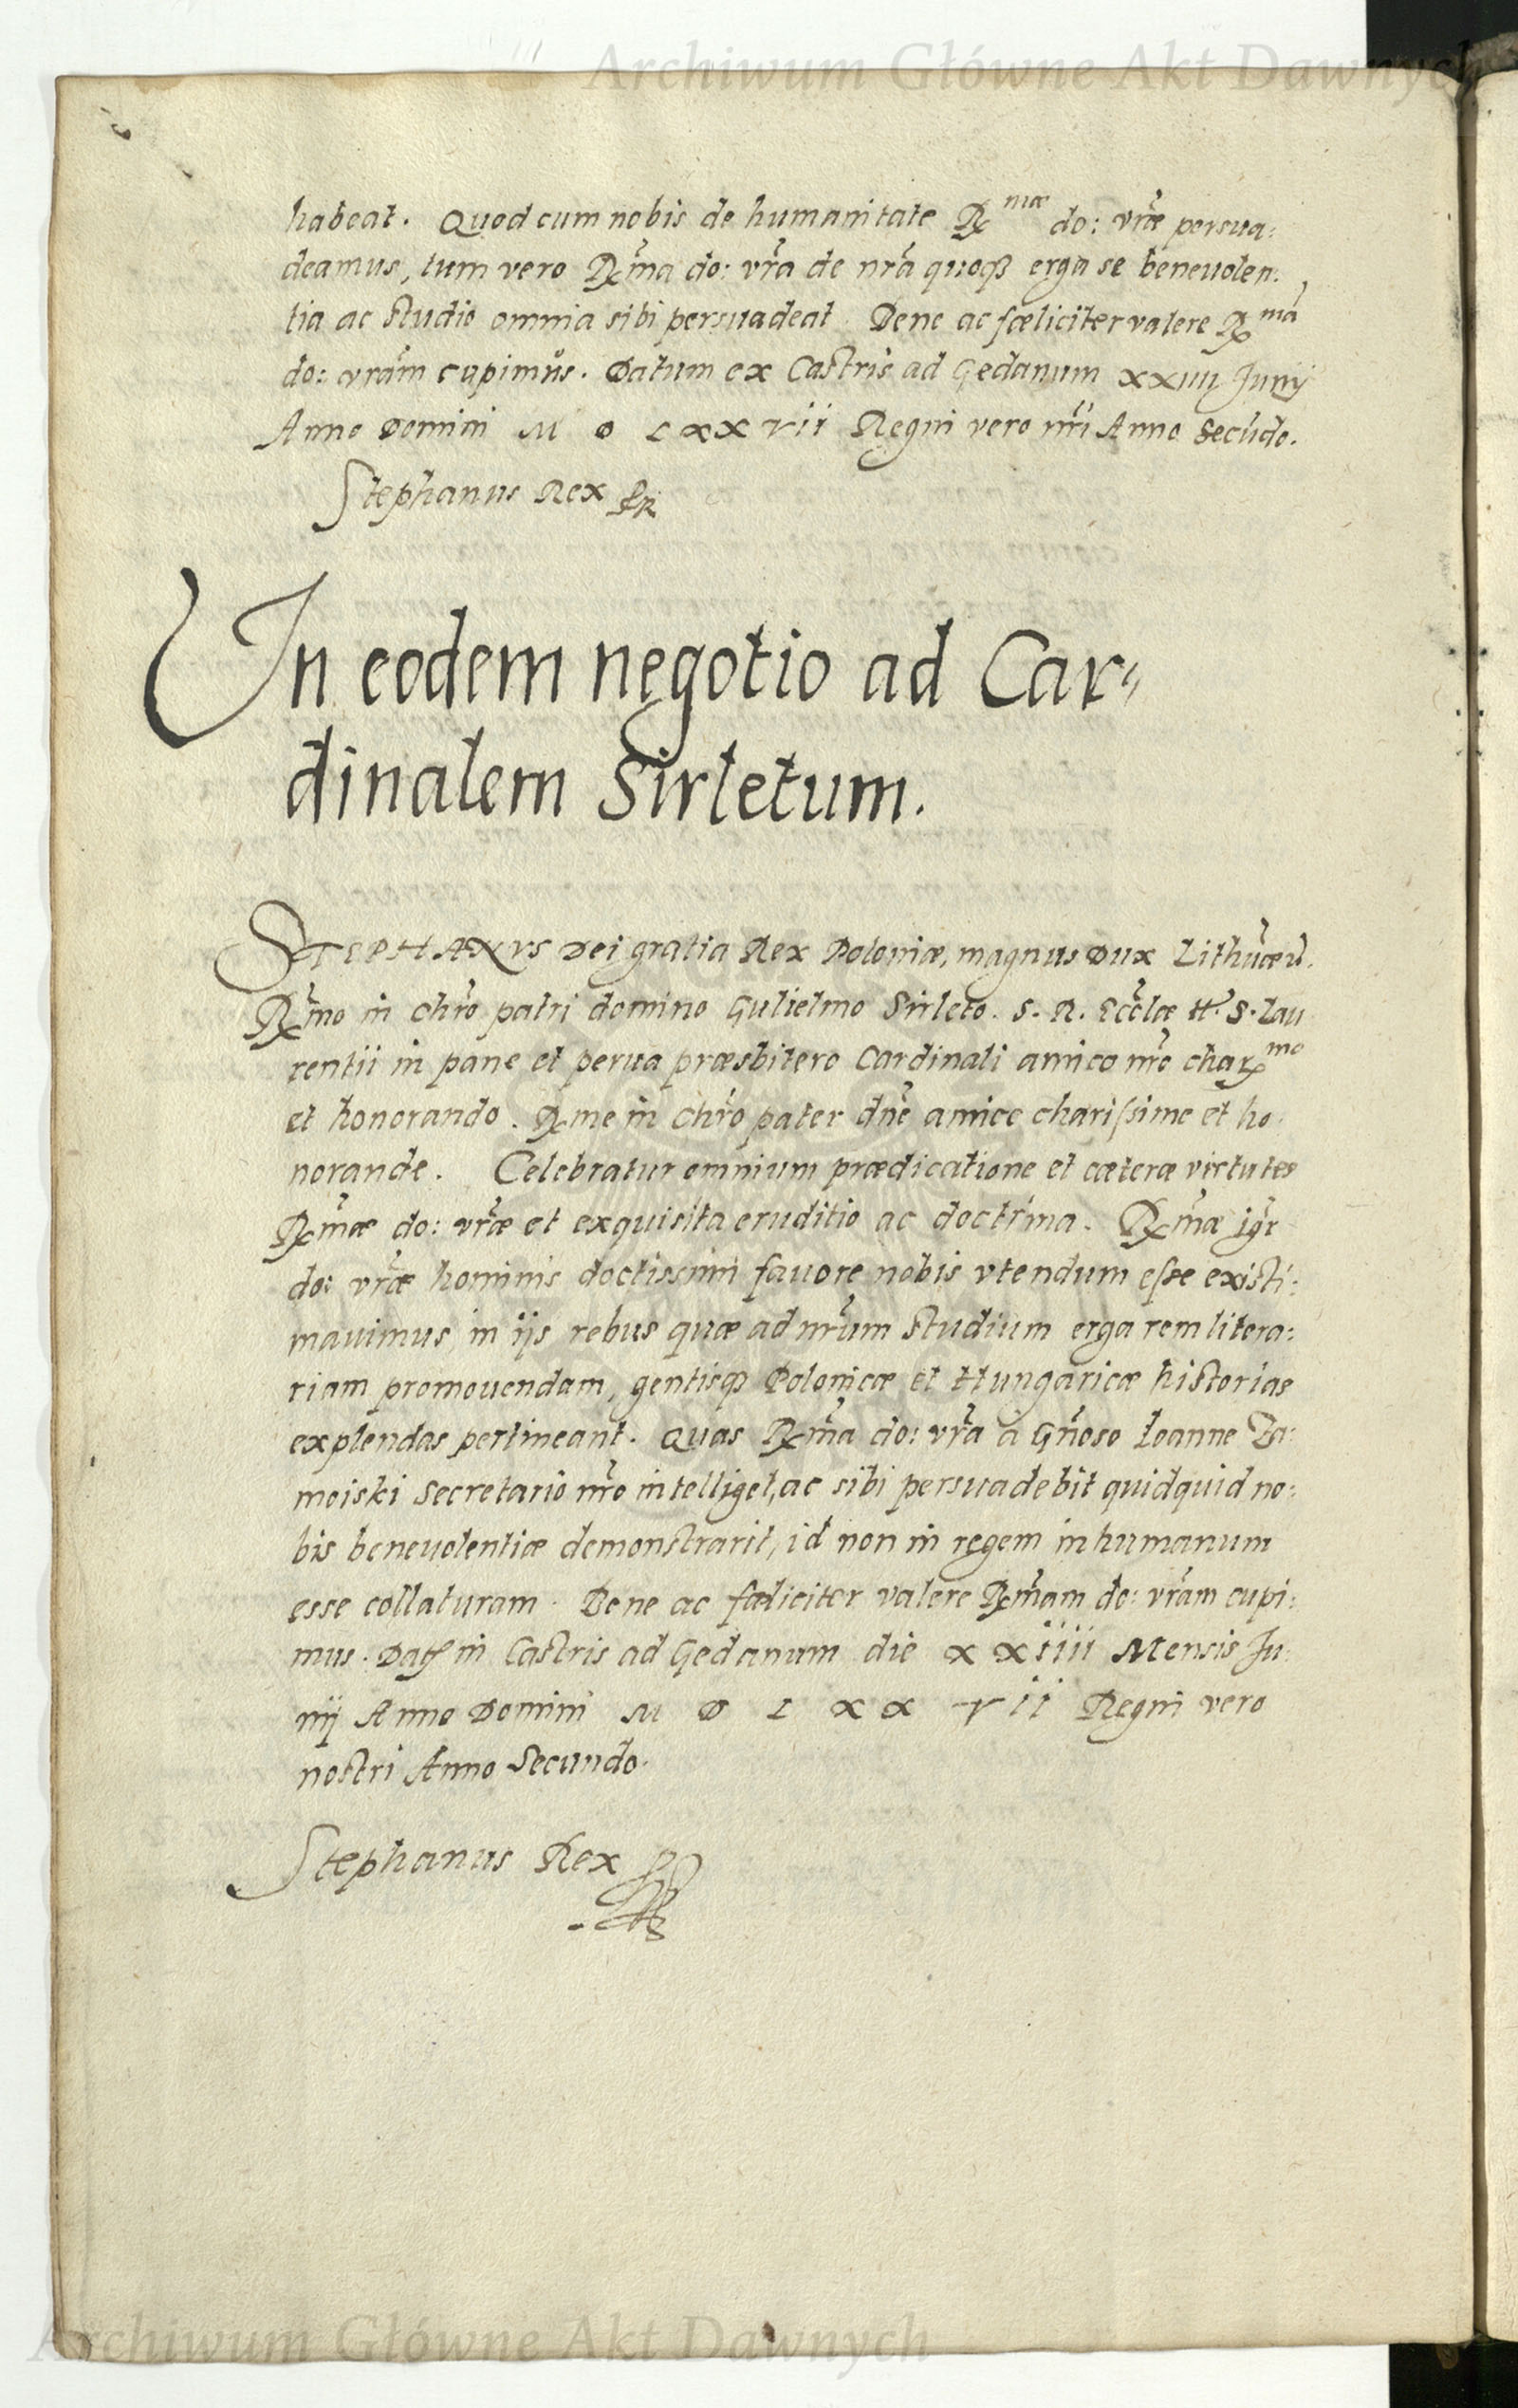 Archiwum Główne Akt Dawnych
habeat. Quod cum nobis de humanitate Rx^mae do: vr̃ae persua:
deamus, tum vero Rx̃ma do: vr̃a de nr̃a quoqꝫ erga se beneuolen:
tia ac studio omnia sibi persuadeat. Bene ac fœliciter valere Rx^mã
do: vrãm cupimus. Datum ex Castris ad Gedanum xxiiii Junij
Anno Domini M D LXXVii Regni vero nr̃i Anno Secũdo.
Stephanus Rex
In eodem negotio ad Car〃
dinalem Sirletum.
STEPHANVS Dei gratia Rex Poloniæ, magnus Dux Lithũæ
Rx̃mo in Chr̃o patri domino Gulielmo Sirleto. S. R. Eccl̃æ tt. S. Lau
rentii in pane et perna præsbitero Cardinali amico nr̃o charx^mo
et honorando. Rx̃me in Chr̃o pater dñe amice charissime et ho.
norande. Celebratur omnium prædicatione et cæteræ virtutes
Rx̃mæ do: vr̃æ et exquisita eruditio ac doctrina. Rx̃mæ igr̃
do: vr̃æ hominis doctissimi fauore nobis vtendum esse existi:
mauimus, in ijs rebus quæ ad nr̃um studium erga rem litera:
riam promouendam, gentisqꝫ Polonicæ et Hungaricæ historias
explendas pertineant. Quas Rx̃ma do: vr̃a à Gñoso Ioanne Za:
moiski Secretario nr̃o intelliget, ac sibi persuadebit quidquid no:
bis beneuolentiæ demonstrarit, id non in regem inhumanum
esse collaturam. Bene ac fœliciter valere Rx̃mam do: vr̃am cupi:
mus. Datꝫ in Castris ad Gedanum die xxiiii Mensis Ju:
nij Anno Domini M D L X X V i i Regni vero
nostri Anno Secundo.
Stephanus Rex
Archiwum Główne Akt Dawnych